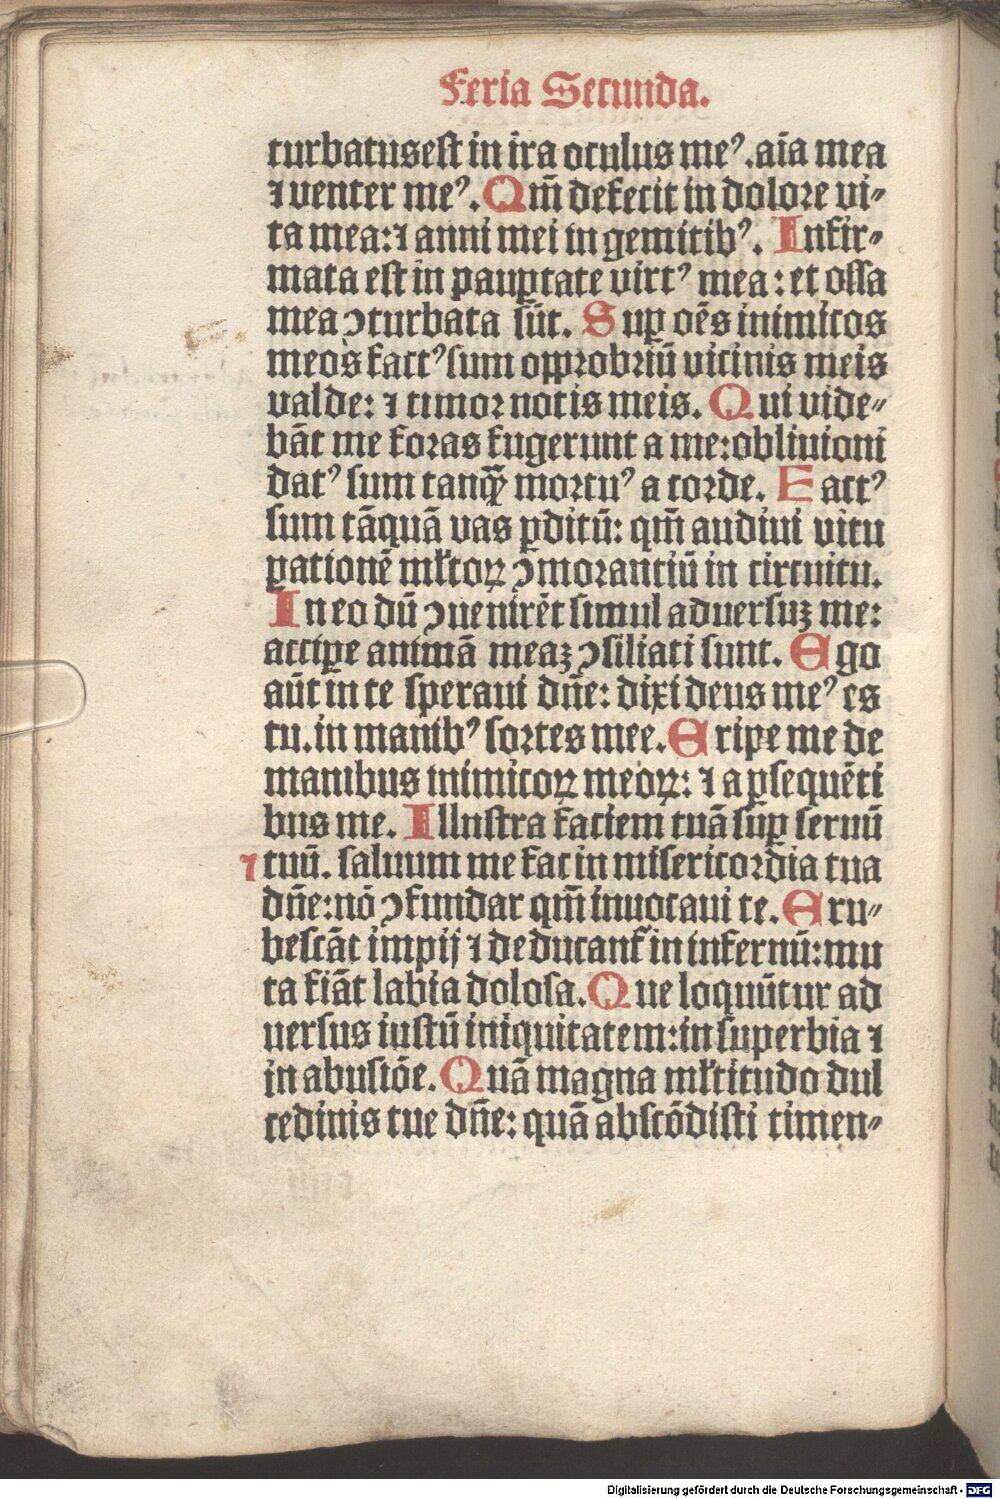 Feria Secunda.
turbatus est in ira oculus meꝰ. aīa mea
⁊ venter meꝰ. Qm̄ defecit in dolore vi⸗
ta mea: ⁊ anni mei in gemitibꝰ. Infir⸗
mata est in pauꝑtate virtꝰ mea: et ossa
mea ꝯturbata sūt. Suꝑ oēs inimicos
meos factꝰ sum opprobriū vicinis meis
valde: ⁊ timor notis meis. Qui vide⸗
bāt me foras fugerunt a me: obliuioni
datꝰ sum tanꝙ̄ mortuꝰ a corde. Factꝰ
sum tāquā vas ꝑditū: qm̄ audiui vitu
ꝑationē mĺtoꝝ ꝯmorantiū in circuitu.
In eo dū ꝯuenirēt simul aduersuꝫ me:
acciꝑe animā meaꝫ ꝯsiliati sunt. Ego
aūt in te speraui dn̄e: dixi deus meꝰ es
tu. in manibꝰ sortes mee. Eripe me de
manibus inimicoꝝ meoꝝ: ⁊ a ꝑsequēti
bus me. Illustra faciem tuā suꝑ seruū
⁊ tuū. saluum me fac in misericordia tua
dn̄e: nō ꝯfundar qm̄ inuocaui te. Eru⸗
bescāt impij ⁊ deducant᷑ in infernū: mu
ta fiāt labia dolosa. Que loquūtur ad
uersus iustū iniquitatem: in superbia ⁊
in abusiōe. Quā magna mĺtitudo dul
cedinis tue dn̄e: quā abscōdisti timen⸗
Digitalisierung gefördert durch die Deutsche Forschungsgemeinschaft - DFG